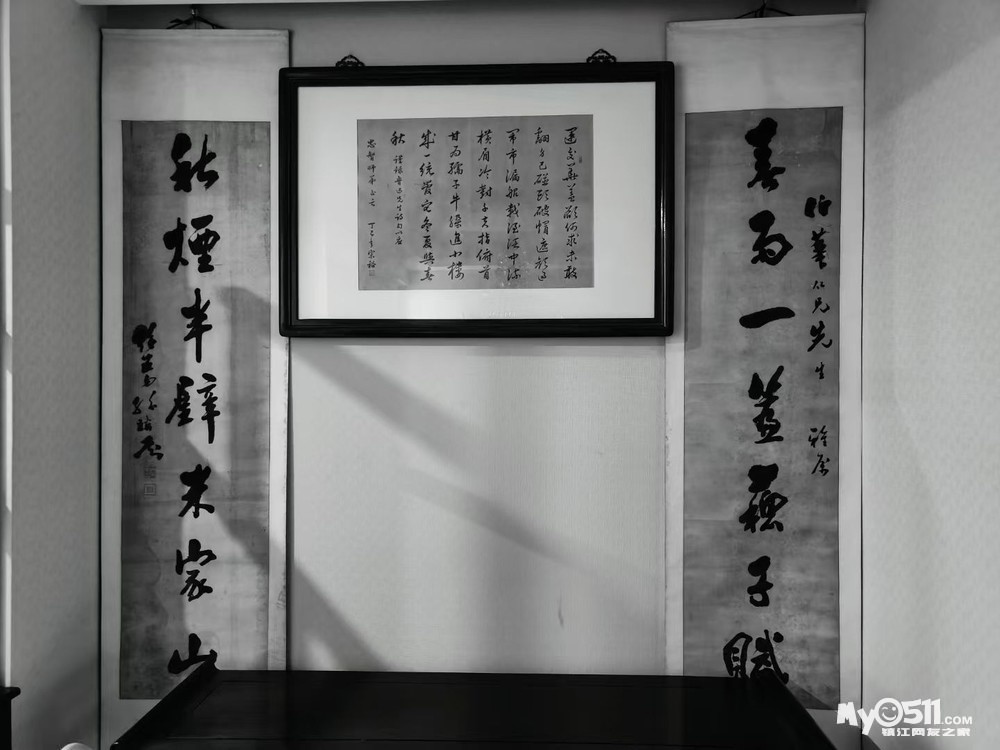 春雨一蓋蘇子賦
伯華仁兄先生 雅屬
運交華蓋欲何求未敢
翻身已碰頭破帽遮顏過
鬧市漏船載酒泛中流
橫眉冷對千夫指俯首
甘為孺子牛躲進小樓
成一統管它冬夏與春
秋 魯迅先生詩
秋煙半壁米家山
My0511.COM
镇江网友之家